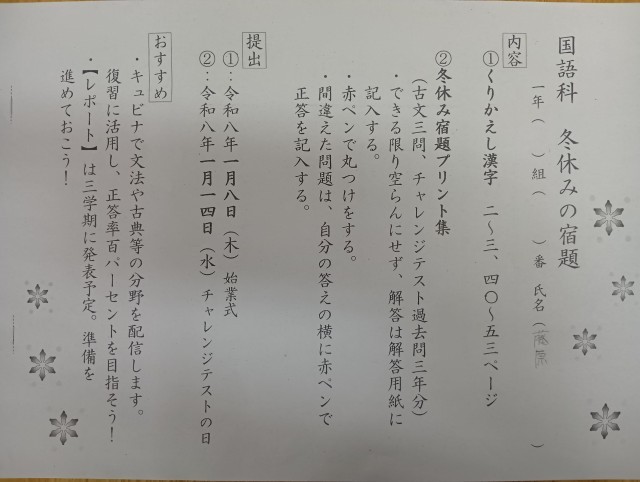 国語科 冬休みの宿題
一年( )組( )番 氏名(藤原 )
内容
①くりかえし漢字 二～三、四〇～五三ページ
②冬休み宿題プリント集
(古文三問、チャレンジテスト過去問三年分)
・できる限り空らんにせず、解答は解答用紙に
記入する。
・赤ペンで丸つけをする。
・間違えた問題は、自分の答えの横に赤ペンで
正答を記入する。
提出
①：令和八年一月八日(木)始業式
②：令和八年一月一四日(水)チャレンジテストの日
おすすめ
・キュビナで文法や古典等の分野を配信します。
復習に活用し、正答率百パーセントを目指そう！
・【レポート】は三学期に発表予定。準備を
進めておこう！